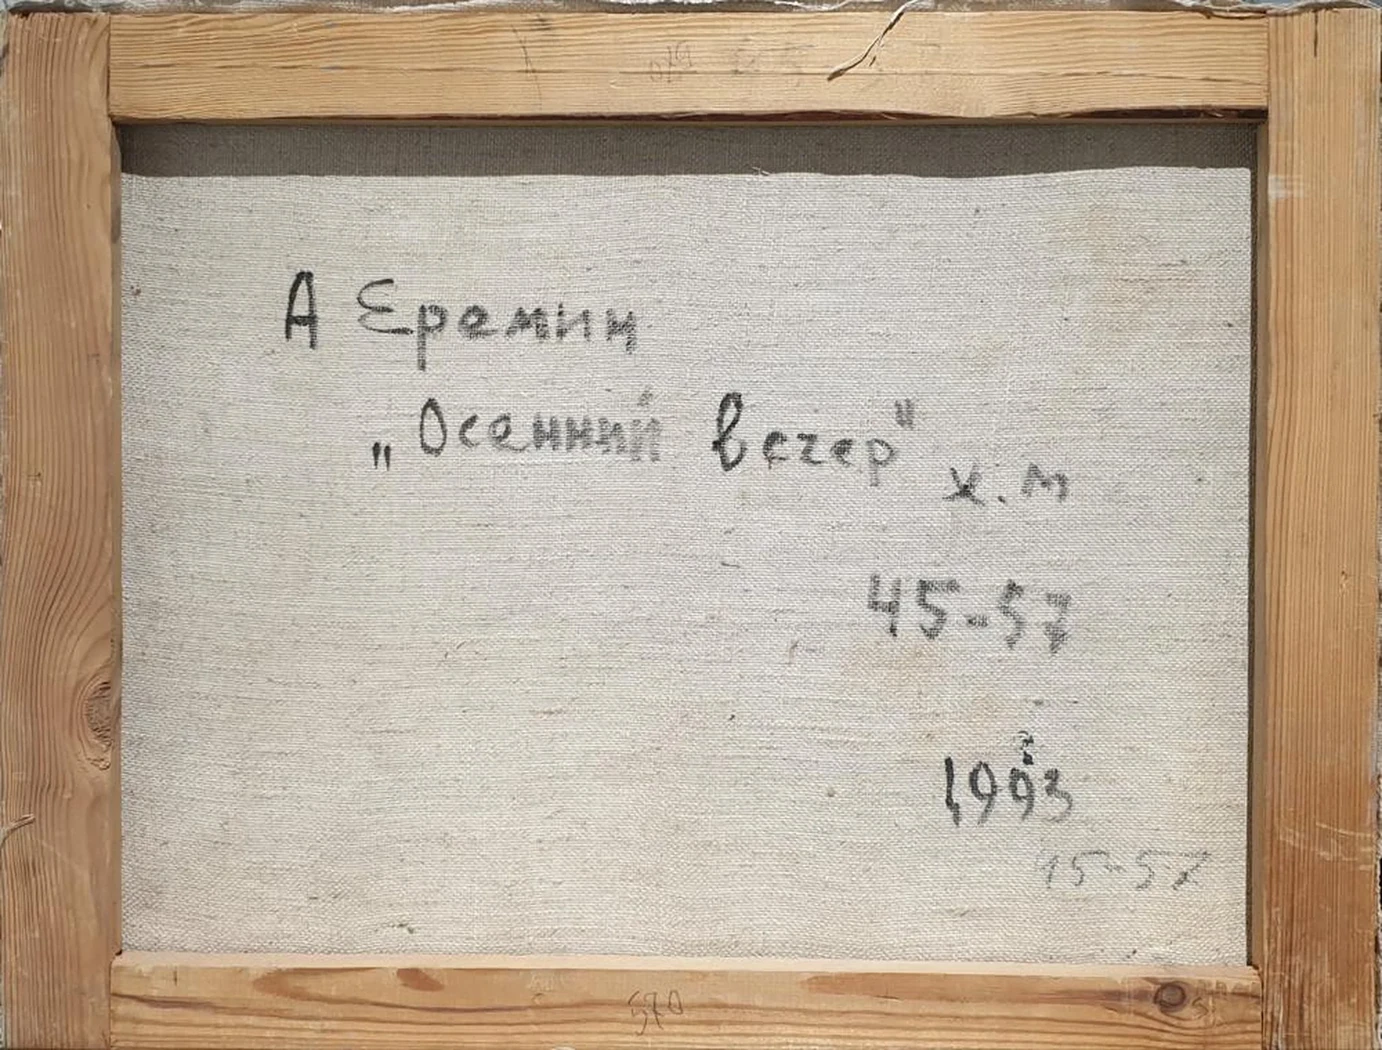 А Еремин
„Осенний вечер"
х.м
45-57
1993
45-57
570